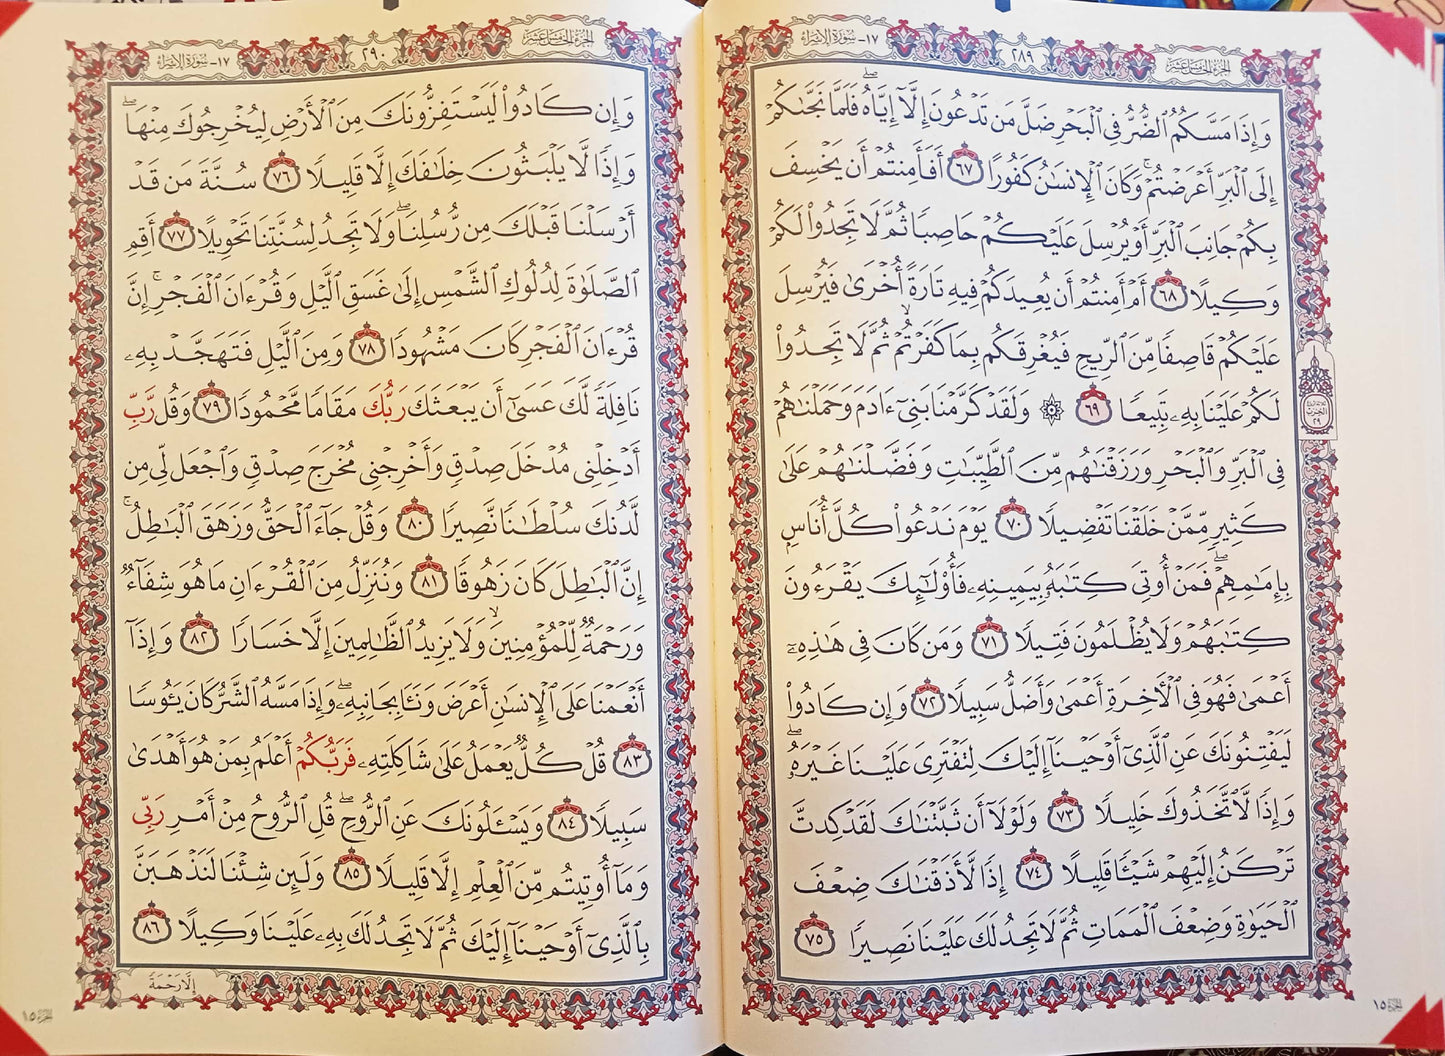 ١٧- سُورَةُ الإِسْرَاء
٢٨٩
الجُزءُ الخَامِسُ عَشَر
وَإِذَا مَسَّكُمُ ٱلضُّرُّ فِي ٱلْبَحْرِ ضَلَّ مَن تَدْعُونَ إِلَّآ إِيَّاهُ ۖ فَلَمَّا نَجَّىٰكُمْ
إِلَى ٱلْبَرِّ أَعْرَضْتُمْ ۚ وَكَانَ ٱلْإِنسَـٰنُ كَفُورًا ٦٧ أَفَأَمِنتُمْ أَن يَخْسِفَ
بِكُمْ جَانِبَ ٱلْبَرِّ أَوْ يُرْسِلَ عَلَيْكُمْ حَاصِبًا ثُمَّ لَا تَجِدُوا۟ لَكُمْ
وَكِيلًا ٦٨ أَمْ أَمِنتُمْ أَن يُعِيدَكُمْ فِيهِ تَارَةً أُخْرَىٰ فَيُرْسِلَ
عَلَيْكُمْ قَاصِفًا مِّنَ ٱلرِّيحِ فَيُغْرِقَكُم بِمَا كَفَرْتُمْ ۙ ثُمَّ لَا تَجِدُوا۟
لَكُمْ عَلَيْنَا بِهِۦ تَبِيعًا ٦٩ ۞ وَلَقَدْ كَرَّمْنَا بَنِىٓ ءَادَمَ وَحَمَلْنَـٰهُمْ
فِي ٱلْبَرِّ وَٱلْبَحْرِ وَرَزَقْنَـٰهُم مِّنَ ٱلطَّيِّبَـٰتِ وَفَضَّلْنَـٰهُمْ عَلَىٰ
كَثِيرٍ مِّمَّنْ خَلَقْنَا تَفْضِيلًا ٧٠ يَوْمَ نَدْعُوا۟ كُلَّ أُنَاسٍۭ
بِإِمَـٰمِهِمْ ۖ فَمَنْ أُوتِىَ كِتَـٰبَهُۥ بِيَمِينِهِۦ فَأُو۟لَـٰٓئِكَ يَقْرَءُونَ
كِتَـٰبَهُمْ وَلَا يُظْلَمُونَ فَتِيلًا ٧١ وَمَن كَانَ فِي هَـٰذِهِۦٓ
أَعْمَىٰ فَهُوَ فِي ٱلْـَٔاخِرَةِ أَعْمَىٰ وَأَضَلُّ سَبِيلًا ٧٢ وَإِن كَادُوا۟
لَيَفْتِنُونَكَ عَنِ ٱلَّذِىٓ أَوْحَيْنَآ إِلَيْكَ لِتَفْتَرِىَ عَلَيْنَا غَيْرَهُۥ ۖ
وَإِذًا لَّٱتَّخَذُوكَ خَلِيلًا ٧٣ وَلَوْلَآ أَن ثَبَّتْنَـٰكَ لَقَدْ كِدتَّ
تَرْكَنُ إِلَيْهِمْ شَيْـًٔا قَلِيلًا ٧٤ إِذًا لَّأَذَقْنَـٰكَ ضِعْفَ
ٱلْحَيَوٰةِ وَضِعْفَ ٱلْمَمَاتِ ثُمَّ لَا تَجِدُ لَكَ عَلَيْنَا نَصِيرًا ٧٥
الحِزْب
٢٩
الجزء ١٥
١٧- سُورَةُ الإِسْرَاء
٢٩٠
الجُزءُ الخَامِسُ عَشَر
وَإِن كَادُوا۟ لَيَسْتَفِزُّونَكَ مِنَ ٱلْأَرْضِ لِيُخْرِجُوكَ مِنْهَا ۖ
وَإِذًا لَّا يَلْبَثُونَ خِلَـٰفَكَ إِلَّا قَلِيلًا ٧٦ سُنَّةَ مَن قَدْ
أَرْسَلْنَا قَبْلَكَ مِن رُّسُلِنَا ۖ وَلَا تَجِدُ لِسُنَّتِنَا تَحْوِيلًا ٧٧ أَقِمِ
ٱلصَّلَوٰةَ لِدُلُوكِ ٱلشَّمْسِ إِلَىٰ غَسَقِ ٱلَّيْلِ وَقُرْءَانَ ٱلْفَجْرِ ۖ إِنَّ
قُرْءَانَ ٱلْفَجْرِ كَانَ مَشْهُودًا ٧٨ وَمِنَ ٱلَّيْلِ فَتَهَجَّدْ بِهِۦ
نَافِلَةً لَّكَ عَسَىٰٓ أَن يَبْعَثَكَ رَبُّكَ مَقَامًا مَّحْمُودًا ٧٩ وَقُل رَّبِّ
أَدْخِلْنِي مُدْخَلَ صِدْقٍ وَأَخْرِجْنِي مُخْرَجَ صِدْقٍ وَٱجْعَل لِّي مِن
لَّدُنكَ سُلْطَـٰنًا نَّصِيرًا ٨٠ وَقُلْ جَآءَ ٱلْحَقُّ وَزَهَقَ ٱلْبَـٰطِلُ ۚ
إِنَّ ٱلْبَـٰطِلَ كَانَ زَهُوقًا ٨١ وَنُنَزِّلُ مِنَ ٱلْقُرْءَانِ مَا هُوَ شِفَآءٌ
وَرَحْمَةٌ لِّلْمُؤْمِنِينَ ۙ وَلَا يَزِيدُ ٱلظَّـٰلِمِينَ إِلَّا خَسَارًا ٨٢ وَإِذَآ
أَنْعَمْنَا عَلَى ٱلْإِنسَـٰنِ أَعْرَضَ وَنَـَٔا بِجَانِبِهِۦ ۖ وَإِذَا مَسَّهُ ٱلشَّرُّ كَانَ يَـُٔوسًا
٨٣ قُلْ كُلٌّ يَعْمَلُ عَلَىٰ شَاكِلَتِهِۦ فَرَبُّكُمْ أَعْلَمُ بِمَنْ هُوَ أَهْدَىٰ
سَبِيلًا ٨٤ وَيَسْـَٔلُونَكَ عَنِ ٱلرُّوحِ ۖ قُلِ ٱلرُّوحُ مِنْ أَمْرِ رَبِّي
وَمَآ أُوتِيتُم مِّنَ ٱلْعِلْمِ إِلَّا قَلِيلًا ٨٥ وَلَئِن شِئْنَا لَنَذْهَبَنَّ
بِٱلَّذِىٓ أَوْحَيْنَآ إِلَيْكَ ثُمَّ لَا تَجِدُ لَكَ بِهِۦ عَلَيْنَا وَكِيلًا ٨٦
إِلَّا رَحْمَةً
الجزء ١٥